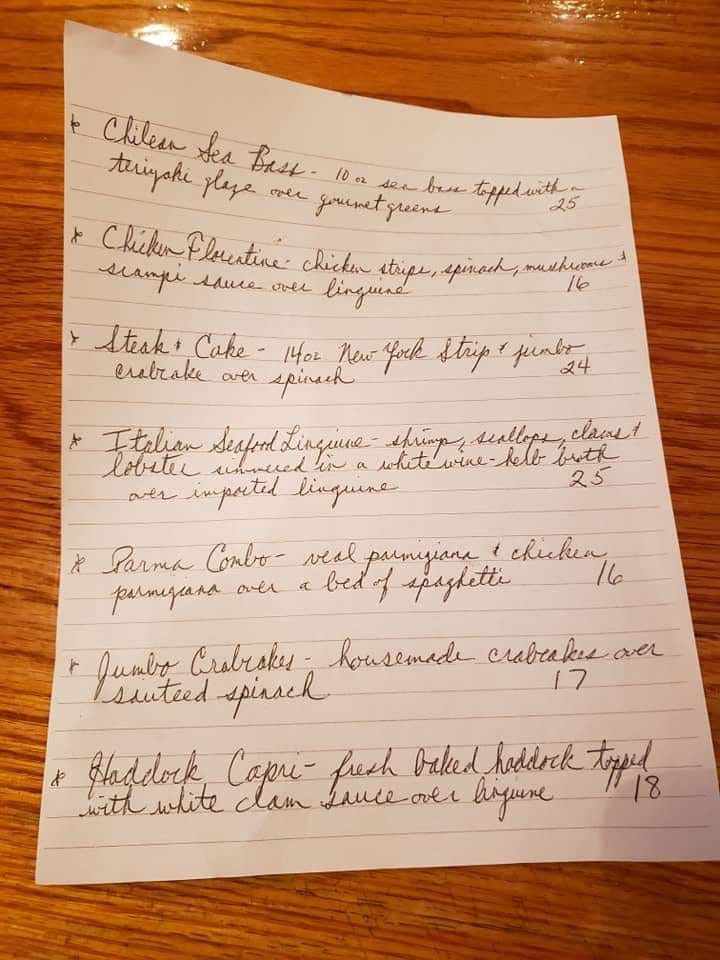 * Chilean Sea Bass - 10 oz sea bass topped with a
teriyaki glaze over gourmet greens 25
* Chicken Florentine - chicken strips, spinach, mushrooms &
scampi sauce over linguine 16
* Steak & Cake - 14oz New York Strip & jumbo
crabcake over spinach 24
* Italian Seafood Linguine - shrimp, scallops, clams &
lobster simmered in a white wine-herb broth
over imported linguine 25
* Parma Combo - veal parmigiana & chicken
parmigiana over a bed of spaghetti 16
* Jumbo Crabcakes - housemade crabcakes over
sauteed spinach 17
* Haddock Capri - fresh baked haddock topped
with white clam sauce over linguine 18